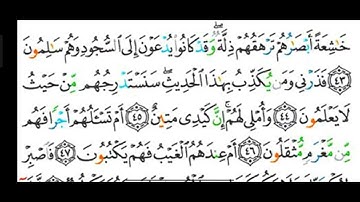 خَاشِعَةً أَبْصَارُهُمْ تَرْهَقُهُمْ ذِلَّةٌ ۖ وَقَدْ كَانُوا يُدْعَوْنَ إِلَى السُّجُودِ وَهُمْ سَالِمُونَ
٤٣ فَذَرْنِي وَمَن يُكَذِّبُ بِهَٰذَا الْحَدِيثِ ۖ سَنَسْتَدْرِجُهُم مِّنْ حَيْثُ
لَا يَعْلَمُونَ ٤٤ وَأُمْلِي لَهُمْ ۚ إِنَّ كَيْدِي مَتِينٌ ٤٥ أَمْ تَسْأَلُهُمْ أَجْرًا فَهُم
مِّن مَّغْرَمٍ مُّثْقَلُونَ ٤٦ أَمْ عِندَهُمُ الْغَيْبُ فَهُمْ يَكْتُبُونَ ٤٧ فَاصْبِرْ